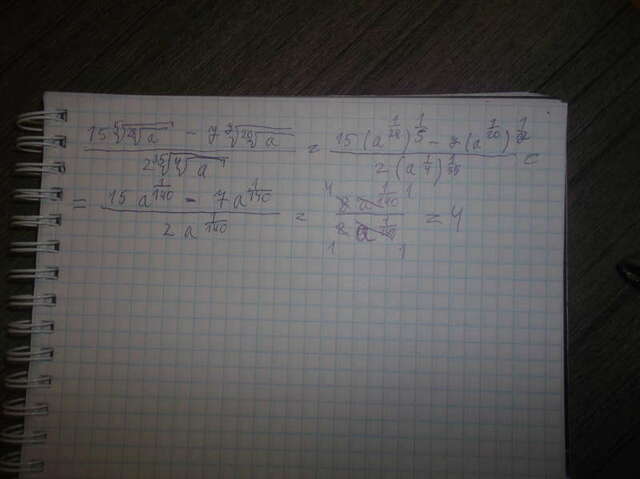 (15 ⁵√(²⁸√a) - 7 ⁷√(²⁰√a)) / (2 ³⁵√(⁴√a)) = (15 (a^(1/28))^(1/5) - 7 (a^(1/20))^(1/7)) / (2 (a^(1/4))^(1/35)) =
= (15 a^(1/140) - 7 a^(1/140)) / (2 a^(1/140)) = (8 a^(1/140)) / (2 a^(1/140)) = 4